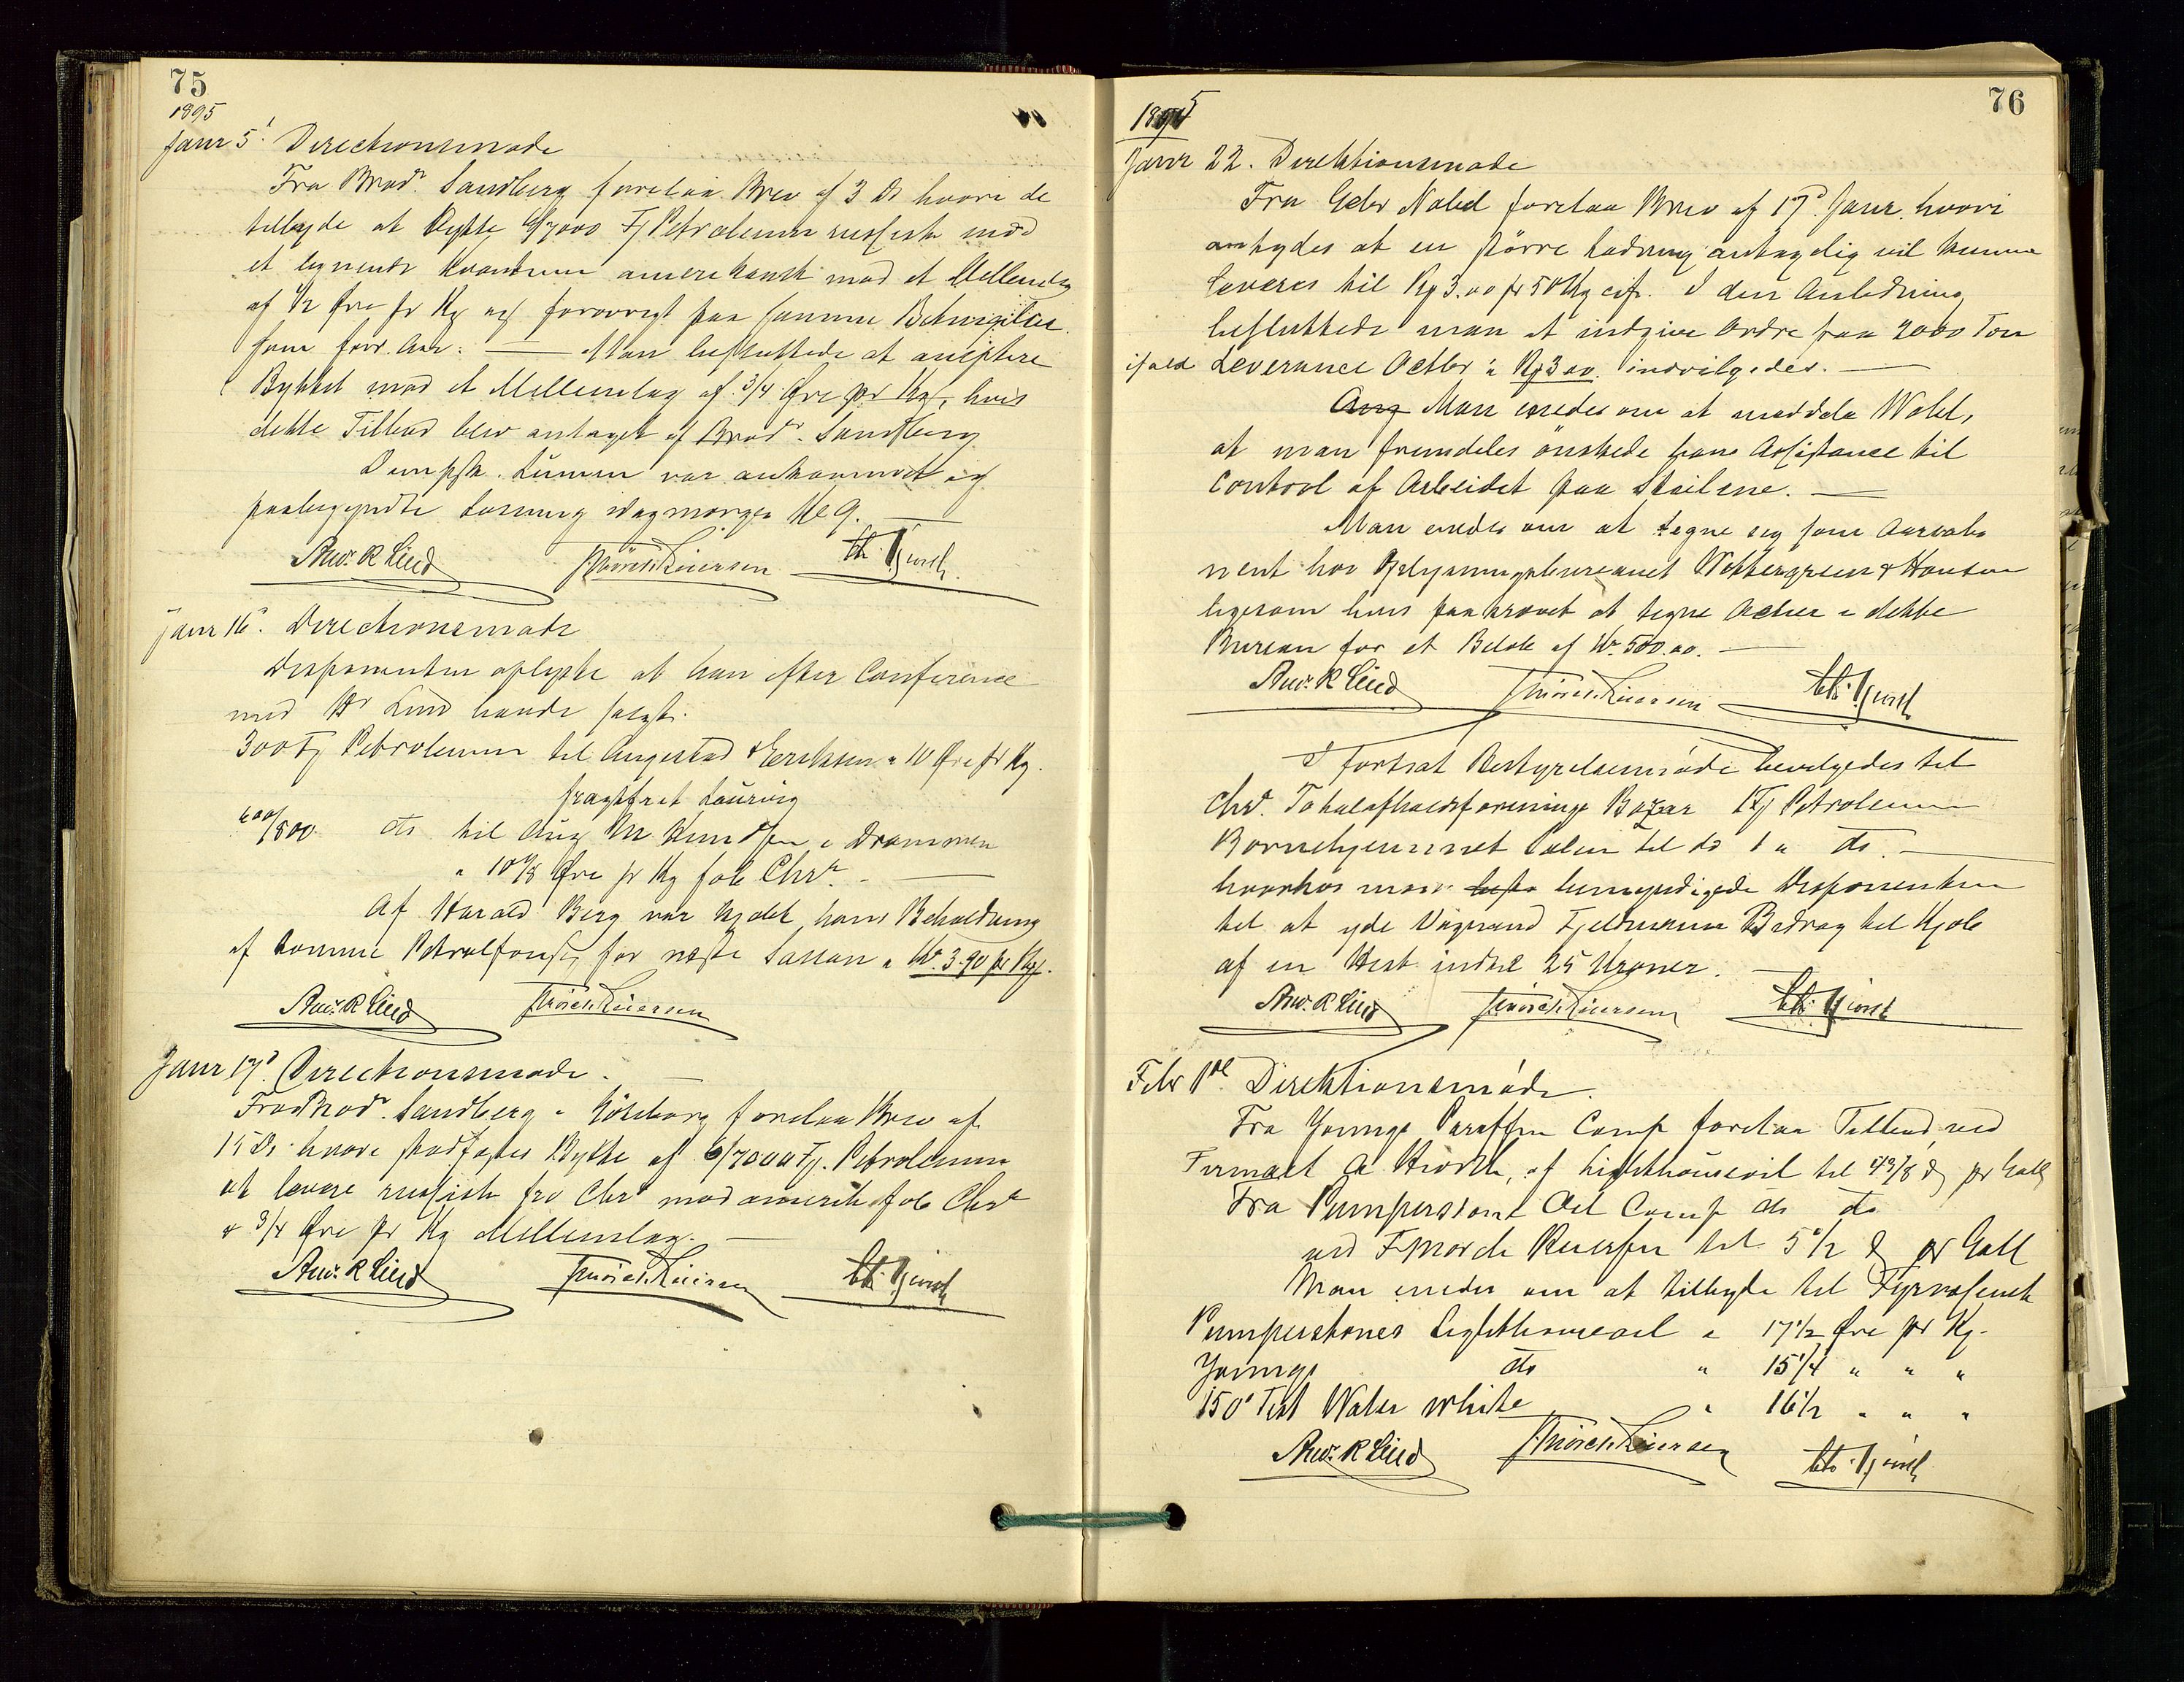 75
1895
Janr 5' Directionsmøde
Fra Brødr Sandberg forelaa Brev af 3 Ds hvori de
tilbyde at bytte 6/7000 Fj Petroleum russisk mod
et lignende Kvantum amerikansk mod et Mellemlag
af 1/2 Øre pr Kg og forøvrigt paa samme Betingelser
som forr. Aar. — Man besluttede at acceptere
Byttet mod et Mellemlag af 3/4 Øre pr Kg, hvis
dette Tilbud blev antaget af Brødr. Sandberg
Dampsk. Lumen var ankommet og
paabegyndte Losning idag morgen Kl 9. —
Andr. R Lind Thrøich Liversen
Janr 16. Directionsmøde
Disponenten oplyste at han efter Conference
med Hr Lind havde solgt
300 Fj Petroleum til Angestad & Eriksen a 10 Øre pr Kg.
fragtfrit Laurvig
600/800 do til Aug M Knudsen i Drammen
a 10 1/8 Øre pr Kg fob Chr.a —
Af Harald Berg var kjøbt hans Beholdning
af tomme Petrolfoust. for næste Saison a Kr. 3.90 pr Stk.
Andr. R Lind
Janr 17d. Directionsmøde. —
Fra Brødr. Sandberg i Göteborg forelaa Brev af
15 Ds hvori stadfæstes Bytte af 6/7000 Fj. Petroleum
at levere russisk fra Chra mod amerik fob Chra
a 3/4 Øre pr Kg Mellemlag. —
Andr. R Lind
76
1895
Janr 22. Direktionsmøde
Fra Gebr Nobel forelaa Brev af 17d Janr. hvori
antydes at en større Ladning antagelig vil kunne
leveres til Kr 3.00 pr 50 Kg cif. I den Anledning
besluttede man at indgive Ordre paa 2000 Ton
ifald Leverance Octbr a Kr 3.00. indvilgedes. —
Ang Man enedes om at meddele Wold,
at man fremdeles ønskede hans Assistance til
Control af Arbeidet paa Steilene. —
Man enedes om at tegne sig som Aarsabo
nent hos Oplysningsbureauet Wettergreen & Hansen
ligesom hvis paakrævet at tegne Actier i dette
Bureau for et Beløb af Kr. 500.00. —
Andr. R Lind
I fortsat Bestyrelsesmøde bevilgedes til
Chra. Totalafholdsforenings Bazar 1 Fj Petroleum
Børnehjemmet Solen til do 1 " do. —
hvorhos man bemyndigede Disponenten
til at yde Vognmand Fjeldmann Bidrag til Kjøb
af en Hest indtil 25 Kroner. —
Andr. R Lind
Febr 1ste Direktionsmøde.
Fra Youngs Paraffin Comp forelaa Tilbud ved
Firmaet A Hiorth, af Lighthouseoil til 4 7/8 d pr Gall
Fra Pumpherstons Oil Comp do do
ved Tjmorch til 5 1/2 d pr Gall
Man enedes om at tilbyde til Fyrvæsenet
Pumpherstones Lighthouseoil a 17 1/2 Øre pr Kg.
Youngs do " 15 1/4 " " "
150° Test Water white " 16 1/2 " " "
Andr. R Lind